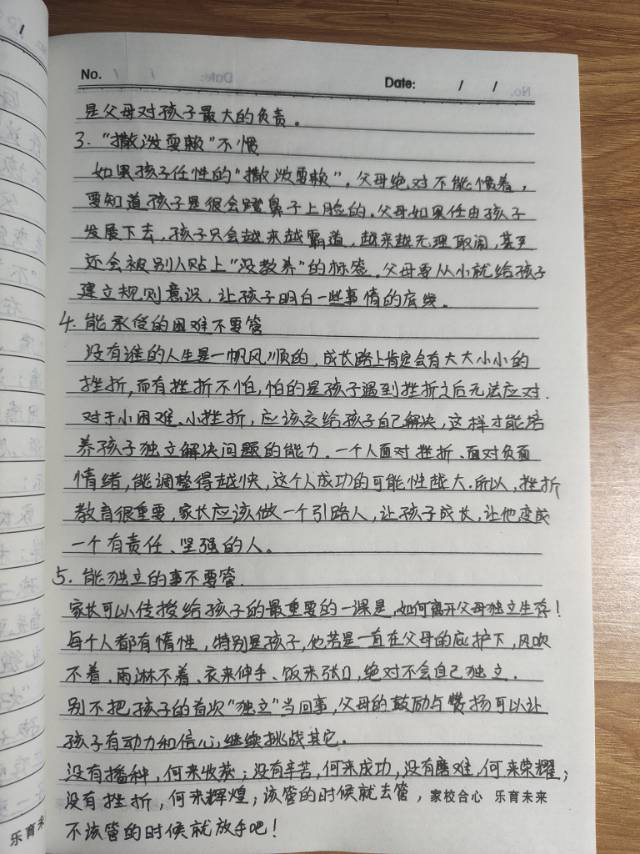 No.
Date: / /
是父母对孩子最大的负责。
3. "撒泼耍赖"不惯
如果孩子任性的"撒泼耍赖"，父母绝对不能惯着，
要知道孩子是很会蹬鼻子上脸的，父母如果任由孩子
发展下去，孩子只会越来越霸道，越来越无理取闹，甚至
还会被别人贴上"没教养"的标签。父母要从小就给孩子
建立规则意识，让孩子明白一些事情的底线。
4. 能承受的困难不要管
没有谁的人生是一帆风顺的，成长路上肯定会有大大小小的
挫折，而有挫折不怕，怕的是孩子遇到挫折之后无法应对.
对于小困难、小挫折，应该交给孩子自己解决，这样才能培
养孩子独立解决问题的能力。一个人面对挫折、面对负面
情绪，能调整得越快，这个人成功的可能性越大.所以，挫折
教育很重要，家长应该做一个引路人，让孩子成长，让他变成
一个有责任、坚强的人。
5. 能独立的事不要管.
家长可以传授给孩子的最重要的一课是，如何离开父母独立生存！
每个人都有惰性，特别是孩子，他若是一直在父母的庇护下，风吹
不着、雨淋不着、衣来伸手、饭来张口，绝对不会自己独立.
别不把孩子的首次"独立"当回事，父母的鼓励与赞扬可以让
孩子有动力和信心，继续挑战其它。
没有播种，何来收获；没有辛苦，何来成功，没有磨难，何来荣耀；
没有挫折，何来辉煌；该管的时候就去管，
家校合心 乐育未来
不该管的时候就放手吧！
乐育未